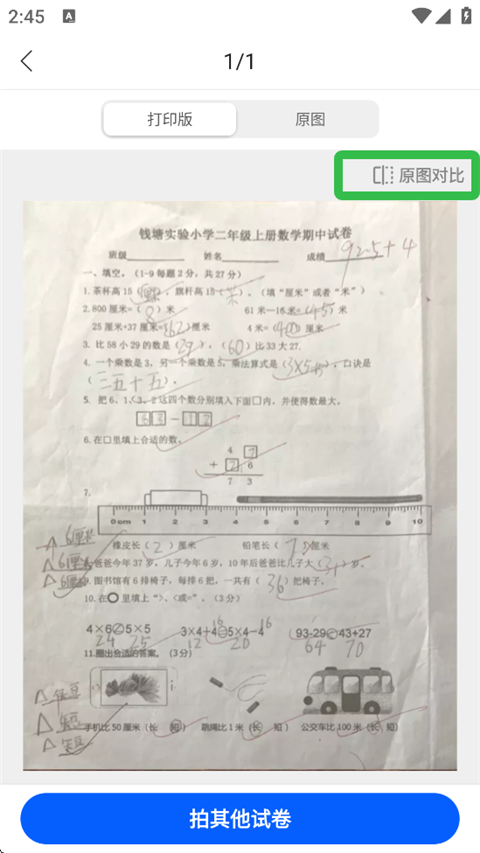 2:45
1/1
打印版 原图
原图对比
钱塘实验小学二年级上册数学期中试卷
班级 姓名 成绩 92.5+4
一、填空。(1-9每题2分,共27分)
1.茶杯高15(厘米),旗杆高15(米)。(填“厘米”或者“米”)
2.800厘米=(8)米 61米-16米=(45)米
25厘米+37厘米=(62)厘米 4米=(400)厘米
3. 比58小29的数是(29),(60)比33大27.
4. 一个乘数是3,另一个乘数是5,乘法算式是(3×5=15),口诀是
(三五十五)。
5. 把6、1、3、2这四个数分别填入下面口内,并使得数最大。
63-12
6. 在口里填上合适的数。
4 7
+ 2 6
7 3
7.
0cm 1 2 3 4 5 6 7 8 9 10
6厘米 橡皮长(2)厘米 铅笔长()厘米
6厘米 爸爸今年37岁,儿子今年6岁,10年后爸爸比儿子大(31)岁。
6厘米 9.图书馆有6排椅子,每排6把,一共有(36)把椅子。
10.在○里填上“>、<或=”。(3分)
4×6<5×5 3×4+4=5×4-4 93-29<43+27
24 25 12 16 20 16 64 70
11.圈出合适的答案。(3分)
手机比50厘米(长 短) 跳绳比1米(长 短) 公交车比100米(长 短)
拍其他试卷